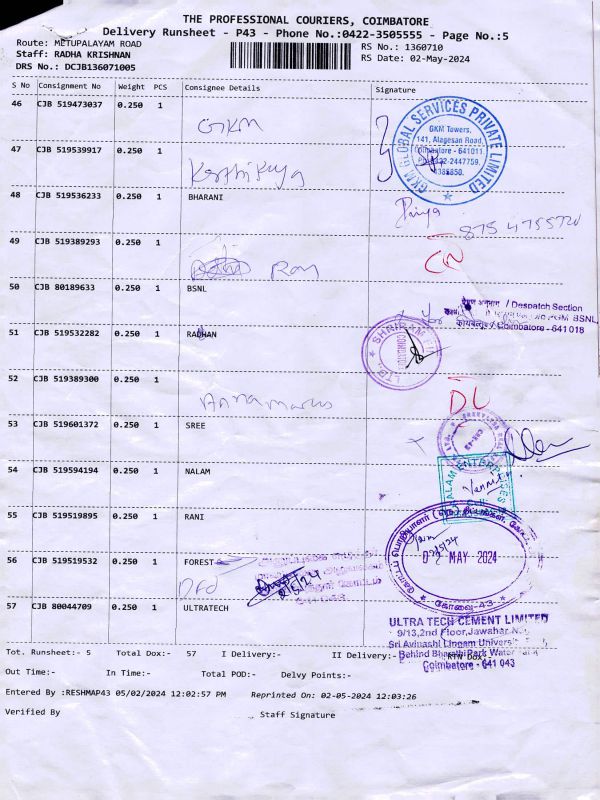 THE PROFESSIONAL COURIERS, COIMBATORE
Delivery Runsheet - P43 - Phone No.:0422-3505555 - Page No.:5
Route: METUPALAYAM ROAD
RS No.: 1360710
Staff: RADHA KRISHNAN
RS Date: 02-May-2024
DRS No.: DCJB136071005
S No Consignment No Weight PCS Consignee Details Signature
46 CJB 519473037 0.250 1
GKM
GKM GLOBAL SERVICES PRIVATE LIMITED
GKM Towers,
141, Alagesan Road,
Coimbatore - 641011
47 CJB 519539917 0.250 1
48 CJB 519536233 0.250 1 BHARANI
Priya
875 4755720
49 CJB 519389293 0.250 1
Ram
50 CJB 80189633 0.250 1 BSNL
प्रेषण अनुभाग / Despatch Section
BSNL,
Coimbatore - 641 018
51 CJB 519532282 0.250 1 RADHAN
COIMBATORE
LTD.
52 CJB 519389300 0.250 1
DL
53 CJB 519601372 0.250 1 SREE
54 CJB 519594194 0.250 1 NALAM
NALAM ENTERPRISES
55 CJB 519519895 0.250 1 RANI
56 CJB 519519532 0.250 1 FOREST
DFO
2/5/24
MAY 2024
கோவை-43
57 CJB 80044709 0.250 1 ULTRATECH
ULTRA TECH CEMENT LIMITED
9/13,2nd Floor,Jawahar
Sri Avinashi Lingam
Behind Bharathi Park Water
Coimbatore - 641 043
Tot. Runsheet:- 5 Total Dox:- 57 I Delivery:- II Delivery:- RTN Dox:-
Out Time:- In Time:- Total POD:- Delvy Points:-
Entered By :RESHMAP43 05/02/2024 12:02:57 PM Reprinted On: 02-05-2024 12:03:26
Verified By Staff Signature